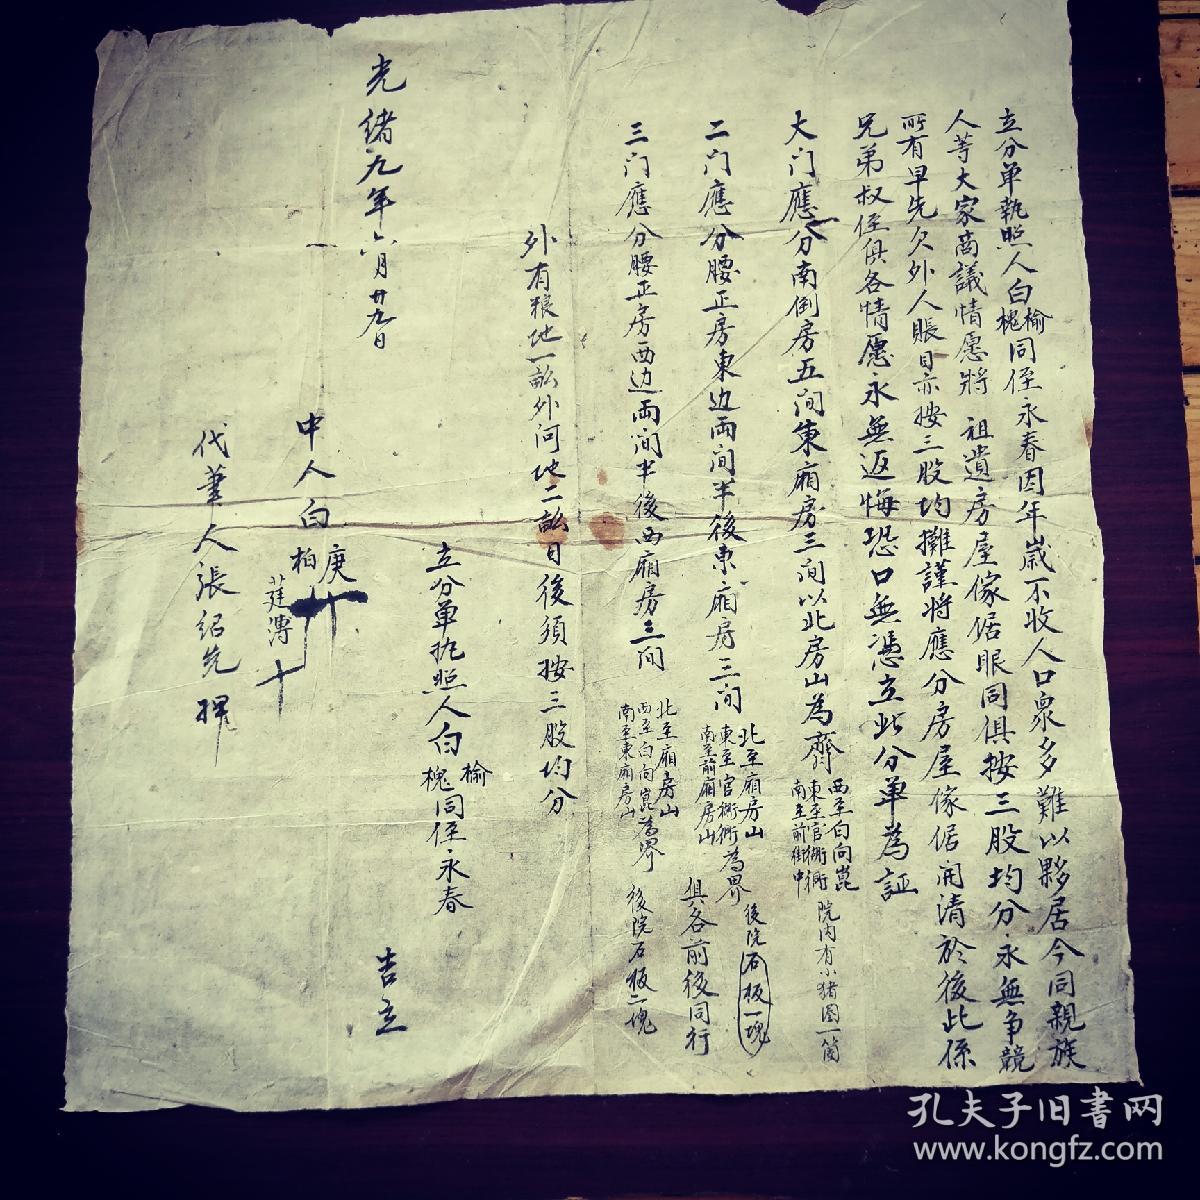 立分单執照人白榆槐同侄永春因年歲不收人口衆多難以夥居今同親族
人等大家商議情愿將 祖遺房屋傢倨眼同俱按三股均分永無争競
所有早先欠外人賬目亦按三股均攤謹將應分房屋傢倨開清於後此係
兄弟叔侄俱各情愿永無返悔恐口無憑立此分单為証
大门應分南倒房五间東廂房三间以北房山為齊
西至白向崑
東至官衚衕
南至前街中
院内有小猪圈一箇
二门應分腰正房東边両间半後東廂房三间
北至廂房山
東至官衚衕為界
南至前廂房山
後院石板一塊
俱各前後同行
三门應分腰正房西边両间半後西廂房三间
北至廂房山
西至白向崑為界
南至東廂房山
後院石板二塊
外有粮地一畝外河地二畝日後須按三股均分
立分单执照人白榆槐同侄永春 吉立
光绪九年六月廿九日
中人白
庚
柏
莛溥
十
代筆人張绍先
孔夫子旧書网
www.kongfz.com